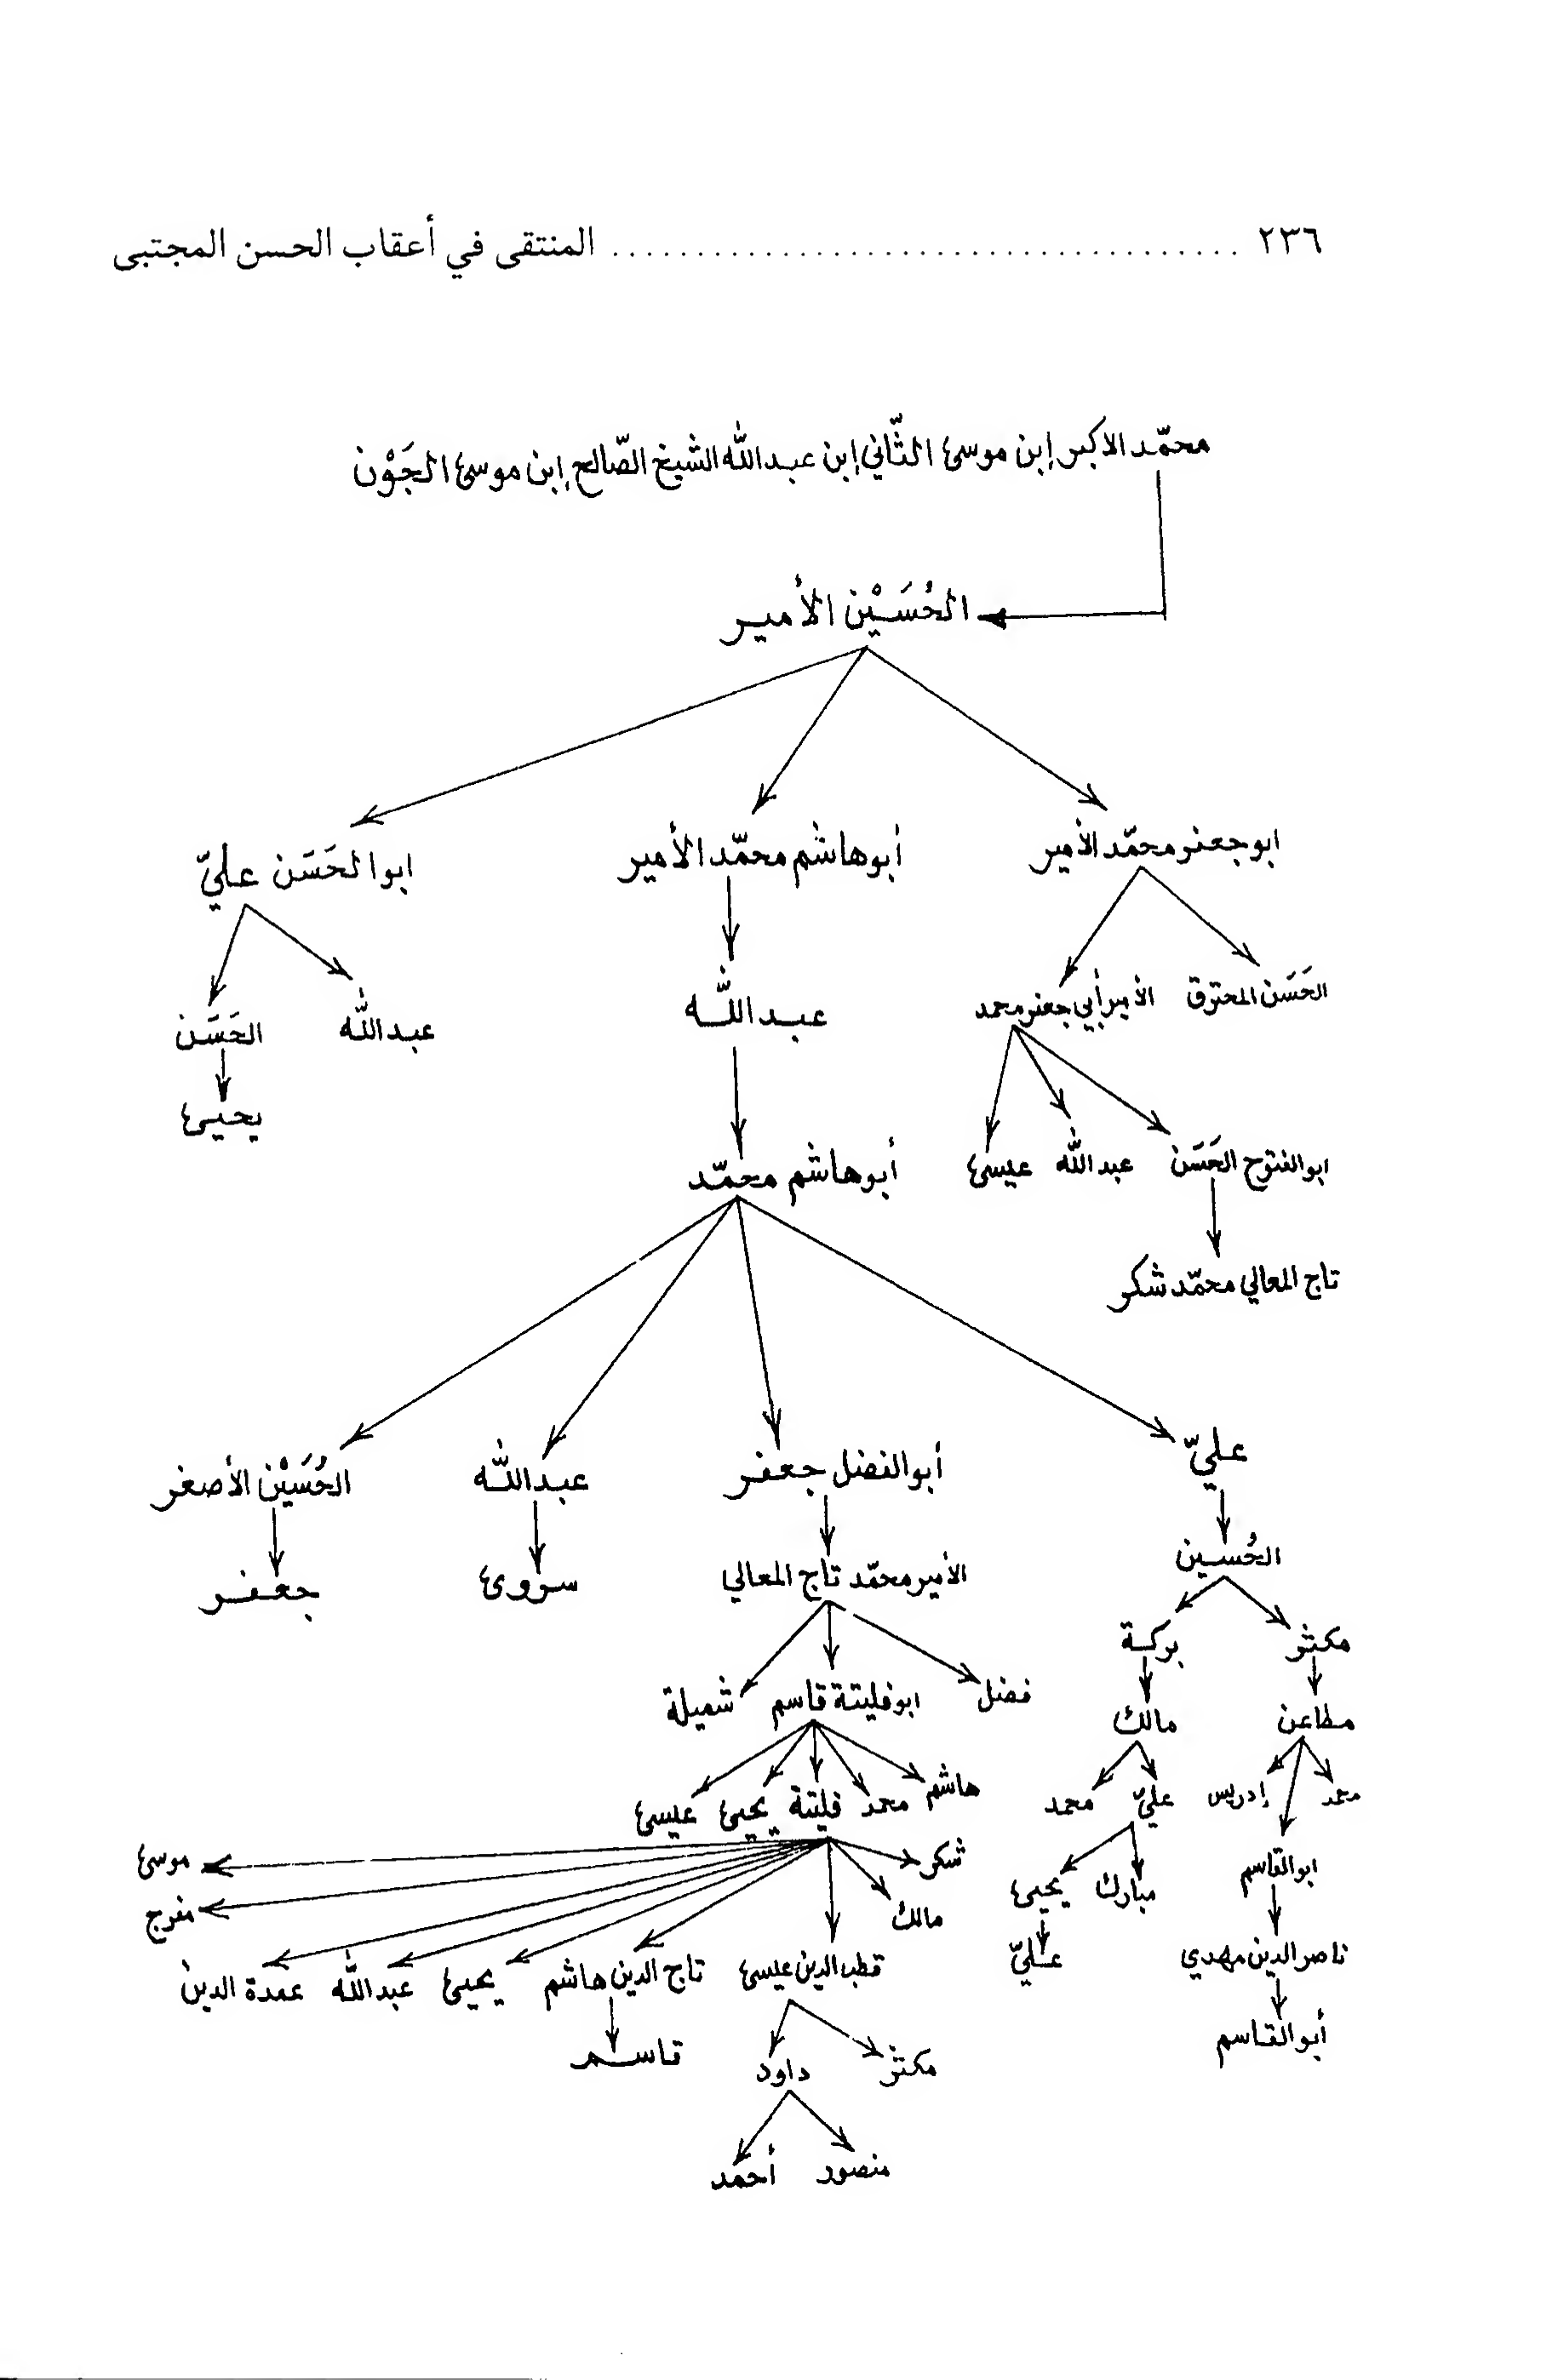 ٢٣٦ .................................... المنتقى في أعقاب الحسن المجتبى
محمّد الاكبر إبن موسىٰ الثّاني إبن عبدالله الشيخ الصّالح إبن موسىٰ الجَوْن
الحُسَيْن الأمير
ابوجعفر محمّد الأمير أبوهاشم محمّد الأمير ابوالحَسَن عليّ
الحَسَن المحترق الأميرأبي جعفرمحمد عبدالله عبدالله الحَسَن
يحيىٰ
ابوالفتوح الحَسَن عبدالله عيسىٰ أبوهاشم محمّد
تاج المعالي محمّد شكر
عليّ أبوالفضل جعفر عبدالله الحُسَيْن الأصغر
الحُسين الأمير محمّد تاج المعالي سروىٰ جعفر
مكثر بركة
فضل ابوفليتة قاسم شميلة
مطاعن مالك
محمد إدريس عليّ محمد هاشم محمد فليتة يحيىٰ عيسىٰ
ابوالقاسم مبارك يحيىٰ شكر موسىٰ
مالك مفرج
ناصرالدين مهدي عليّ قطب الدين عيسىٰ تاج الدين هاشم يحيىٰ عبدالله عمدة الدين
أبوالقاسم مكثر داود قاسم
منصور أحمد